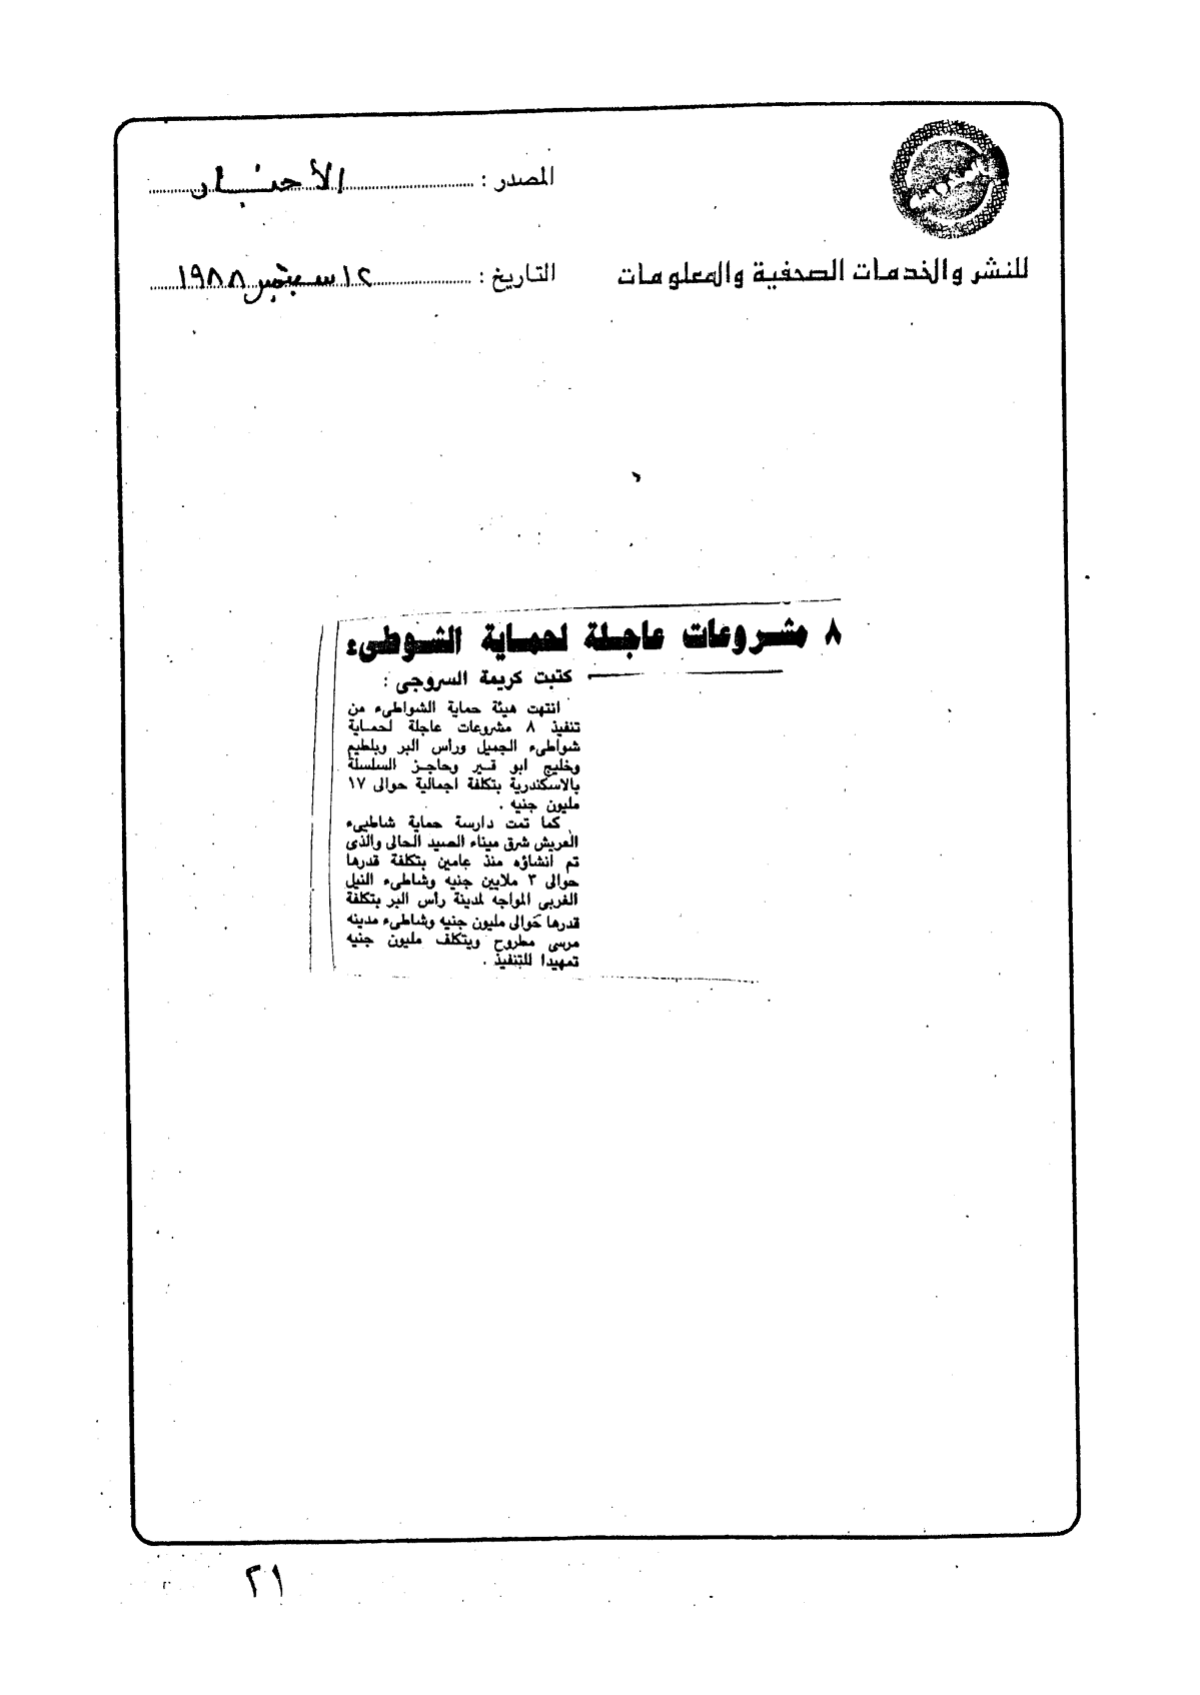 المصدر : الأخبار
للنشر والخدمات الصحفية والمعلومات
التاريخ : ١٢ سبتمبر ١٩٨٨
٨ مشروعات عاجلة لحماية الشوطىء
كتبت كريمة السروجى :
انتهت هيئة حماية الشواطىء من
تنفيذ ٨ مشروعات عاجلة لحماية
شواطىء الجميل ورأس البر وبلطيم
وخليج ابو قير وحاجز السلسلة
بالاسكندرية بتكلفة اجمالية حوالى ١٧
مليون جنيه .
كما تمت دارسة حماية شاطيىء
العريش شرق ميناء الصيد الحالى والذى
تم انشاؤه منذ عامين بتكلفة قدرها
حوالى ٣ ملايين جنيه وشاطىء النيل
الغربى المواجه لمدينة رأس البر بتكلفة
قدرها حوالى مليون جنيه وشاطىء مدينه
مرسى مطروح ويتكلف مليون جنيه
تمهيدا للتنفيذ .
٢١